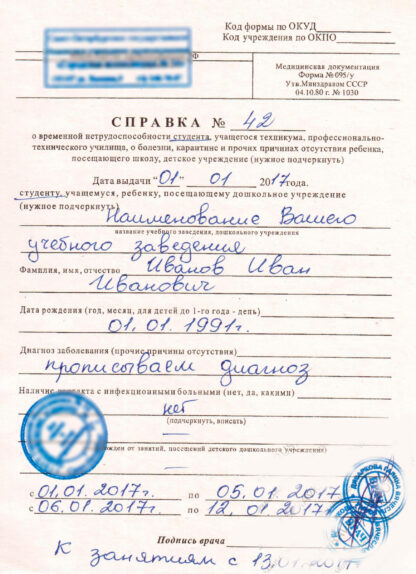 Код формы по ОКУД
Код учреждения по ОКПО
Медицинская документация
Форма № 095/у
Утв.Минздравом СССР
04.10.80 г. № 1030
СПРАВКА № 42
о временной нетрудоспособности студента, учащегося техникума, профессионально-
технического училища, о болезни, карантине и прочих причинах отсутствия ребенка,
посещающего школу, детское учреждение (нужное подчеркнуть)
Дата выдачи "01" 01 2017года.
студенту, учащемуся, ребенку, посещающему дошкольное учреждение
(нужное подчеркнуть) Наименование Вашего
название учебного заведения, дошкольного учреждения
учебного заведения
Фамилия, имя, отчество Иванов Иван
Иванович
Дата рождения (год, месяц, для детей до 1-го года - день)
01.01.1991г.
Диагноз заболевания (прочие причины отсутствия)
прописываем диагноз
Наличие контакта с инфекционными больными (нет, да, какими)
нет
(подчеркнуть, вписать)
от занятий, посещений детского дошкольного учреждения)
с 01.01.2017г. по 05.01.2017
с 06.01.2017г. по 12.01.2017
Подпись врача
К занятиям с 13.01.2017